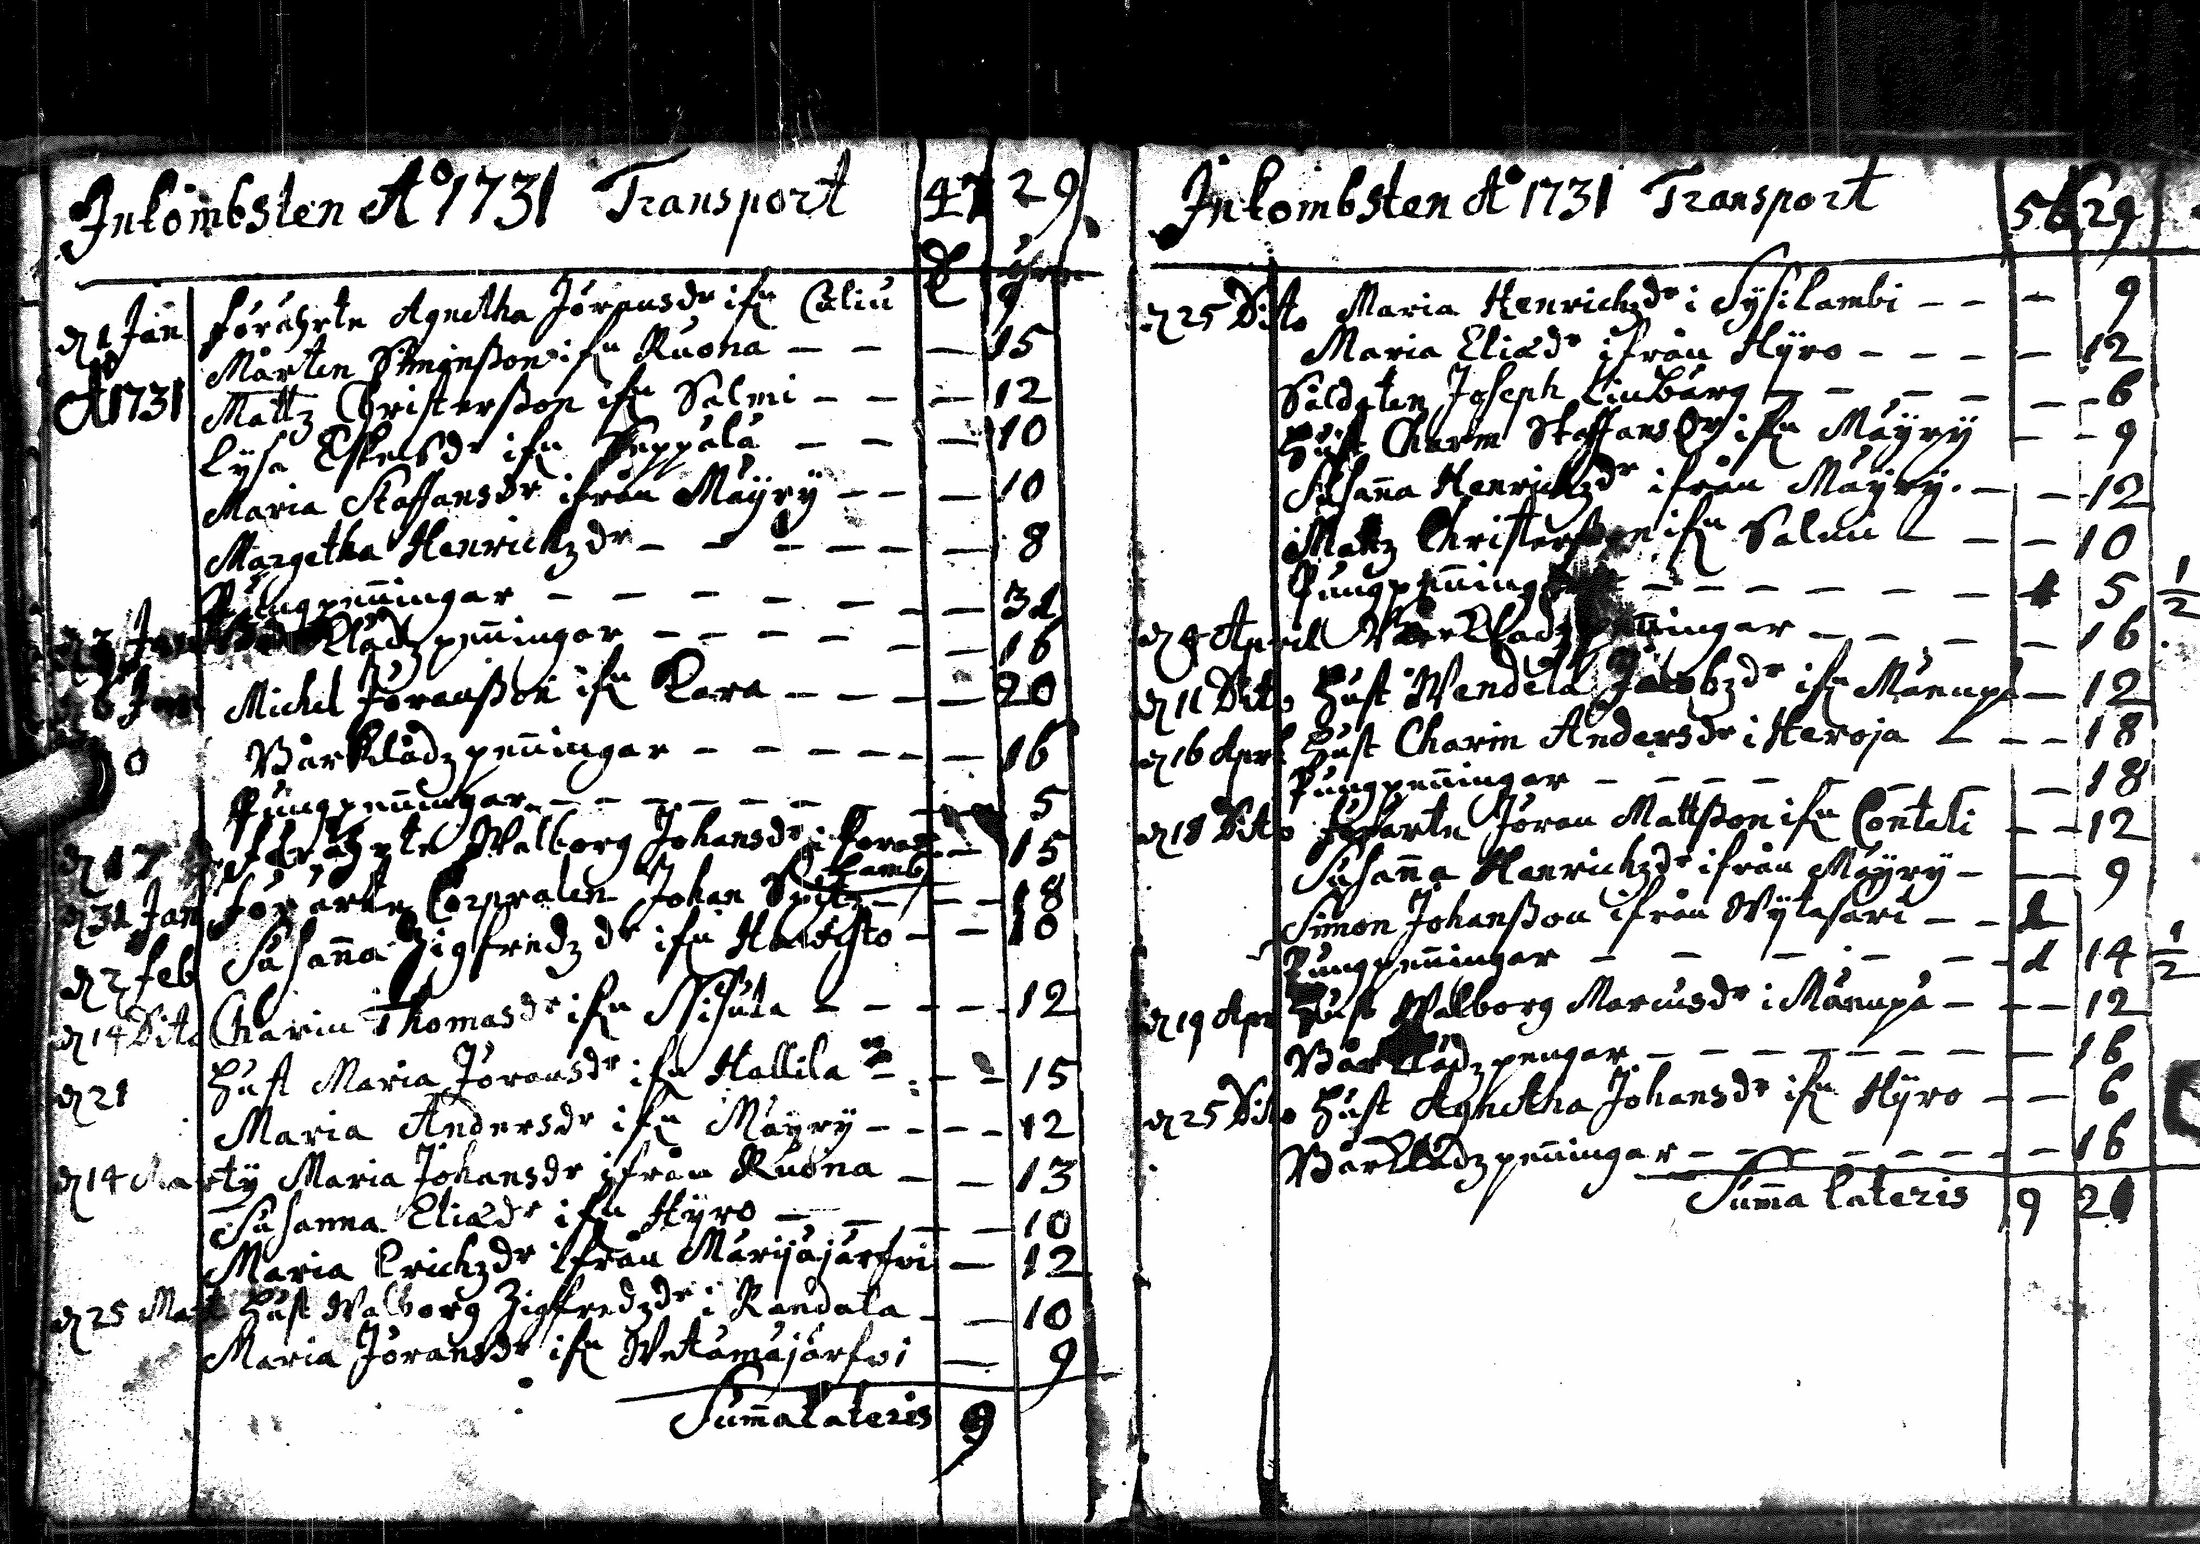 Inkombsten A° 1731 Transport 47 29
d 1 Jan förährte Agnetha Jöransdr ifn Caliu 9
A° 1731 Mårten Simonsson ifn Ruona — — — 15
Mattz Christersson ifn Salmi — — — 12
Lysa Eskelsdr ifn Seppälä — — — 10
Maria Staffansdr ifrån Mäyry — — — 10
Margetha Henrichzdr — — — — — 8
Pungpenningar — — — — — — 31
Jan klädz penningar — — — — — — 16
6 Jan Michel Jöransson ifn Kara — — — 20
Bårklädz penningar — — — — — — 16
Pungpenningar — — — — — — 5
d 17 förährte Walborg Johansdr i Koras= — 15
lambi
d 31 Jan förärte Corpralen Johan — — 18
d 2 feb Susanna Zigfredzdr ifn — — 10
d 14 Dito Charin Thomasdr ifn — — — — 12
d 21 Hust Maria Jöransdr ifn Hallila — — — 15
Maria Andersdr ifn Mäyry — — — — 12
d 14 Marty Maria Johansdr ifrån Ruona — — 13
Susanna Eliædr ifn Hyro — — — — 10
Maria Erichzdr ifrån Märijäjärfwi — 12
d 25 Mart Hust Walborg Zigfredzdr i Randala — — 10
Maria Jöransdr ifn Wetämäjärfwi — 9
Summa lateris 9
Inkombsten A° 1731 Transport 56 29
d 25 Dito Maria Henrichzdr i Sysilambi — — — 9
Maria Eliædr ifrån Hyro — — — — 12
Soldaten Joseph Linbärg — — — — — 6
Hust Charin Staffansdr ifn Mäyry — — 9
Susanna Henrichzdr ifrån Mäyry. — — 12
Mattz Christersson ifn Salmi — — — 10
Pungpenningar — — — — — — 1 5 1/2
d Aprill Bårklädz penningar — — — — 16
d 11 Dito Hust Wendela Jacobzdr ifn Märnpä — 12
d 16 Aprl Hust Charin Andersdr i Heroja — — — 18
Pungpenningar — — — — — — — 18
d 18 Dito förärte Jöran Mattsson ifn Conteli — — 12
Susanna Henrichzdr ifrån Mäyry — — — 9
Simon Johansson ifrån Wytasari — — 1
Pungpenningar — — — — — — 1 14 1/2
d 19 Apr Hust Walborg Mariusdr i Märnpä — — — 12
Bårklädz pengar — — — — — — — — 16
d 25 Dito Hust Agnetha Johansdr ifn Hyro — — 6
Bårklädz penningar — — — — — — — — 16
Summa lateris 9 21